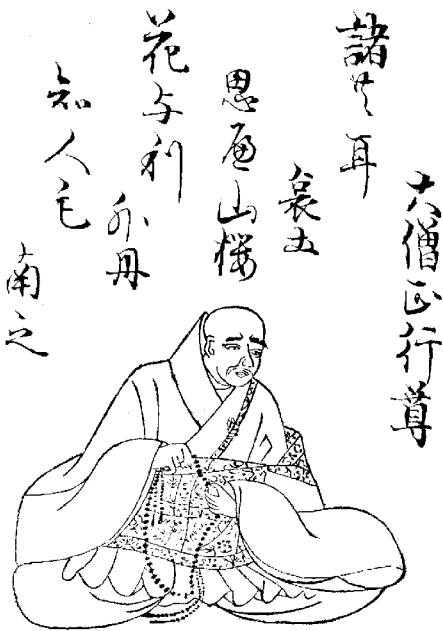 大僧正行尊
諸共耳
哀土
思遍山桜
花与利
外丹
知人毛
南之